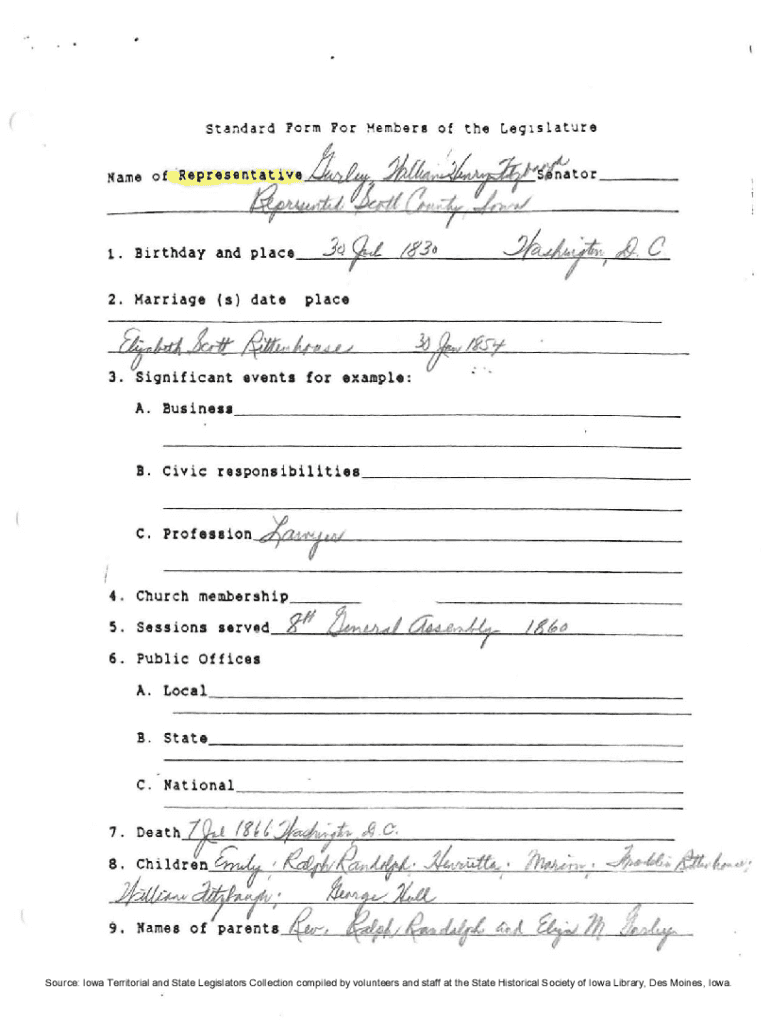 Standard Form For Members of the Legislature
Name of Representative Gurley, William Henry Fitzhugh Senator
Represented Scott County, Iowa
1. Birthday and place 30 Jul 1830 Washington, D.C.
2. Marriage (s) date place
Elizabeth Scott Rittenhouse 30 Jan 1854
3. Significant events for example:
A. Business
B. Civic responsibilities
C. Profession Lawyer
4. Church membership
5. Sessions served 8th General Assembly 1860
6. Public Offices
A. Local
B. State
C. National
7. Death 7 Jul 1866 Washington, D.C.
8. Children Emily; Ralph Randolph; Henrietta; Marion; Franklin Rittenhouse;
William Fitzhaugh; George Hull
9. Names of parents Rev. Ralph Randolph and Eliza M Gurley
Source: Iowa Territorial and State Legislators Collection compiled by volunteers and staff at the State Historical Society of Iowa Library, Des Moines, Iowa.